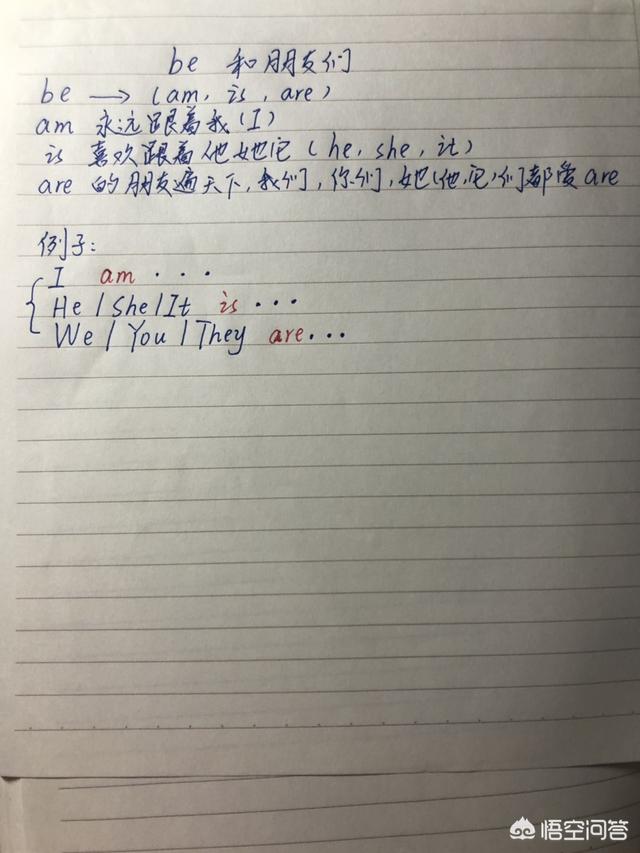 be 和朋友们
be → (am, is, are)
am 永远跟着我(I)
is 喜欢跟着他她它(he, she, it)
are 的朋友遍天下,我们,你们,她(他,它)们都爱are
例子:
I am ···
He / She / It is ···
We / You / They are···
悟空问答